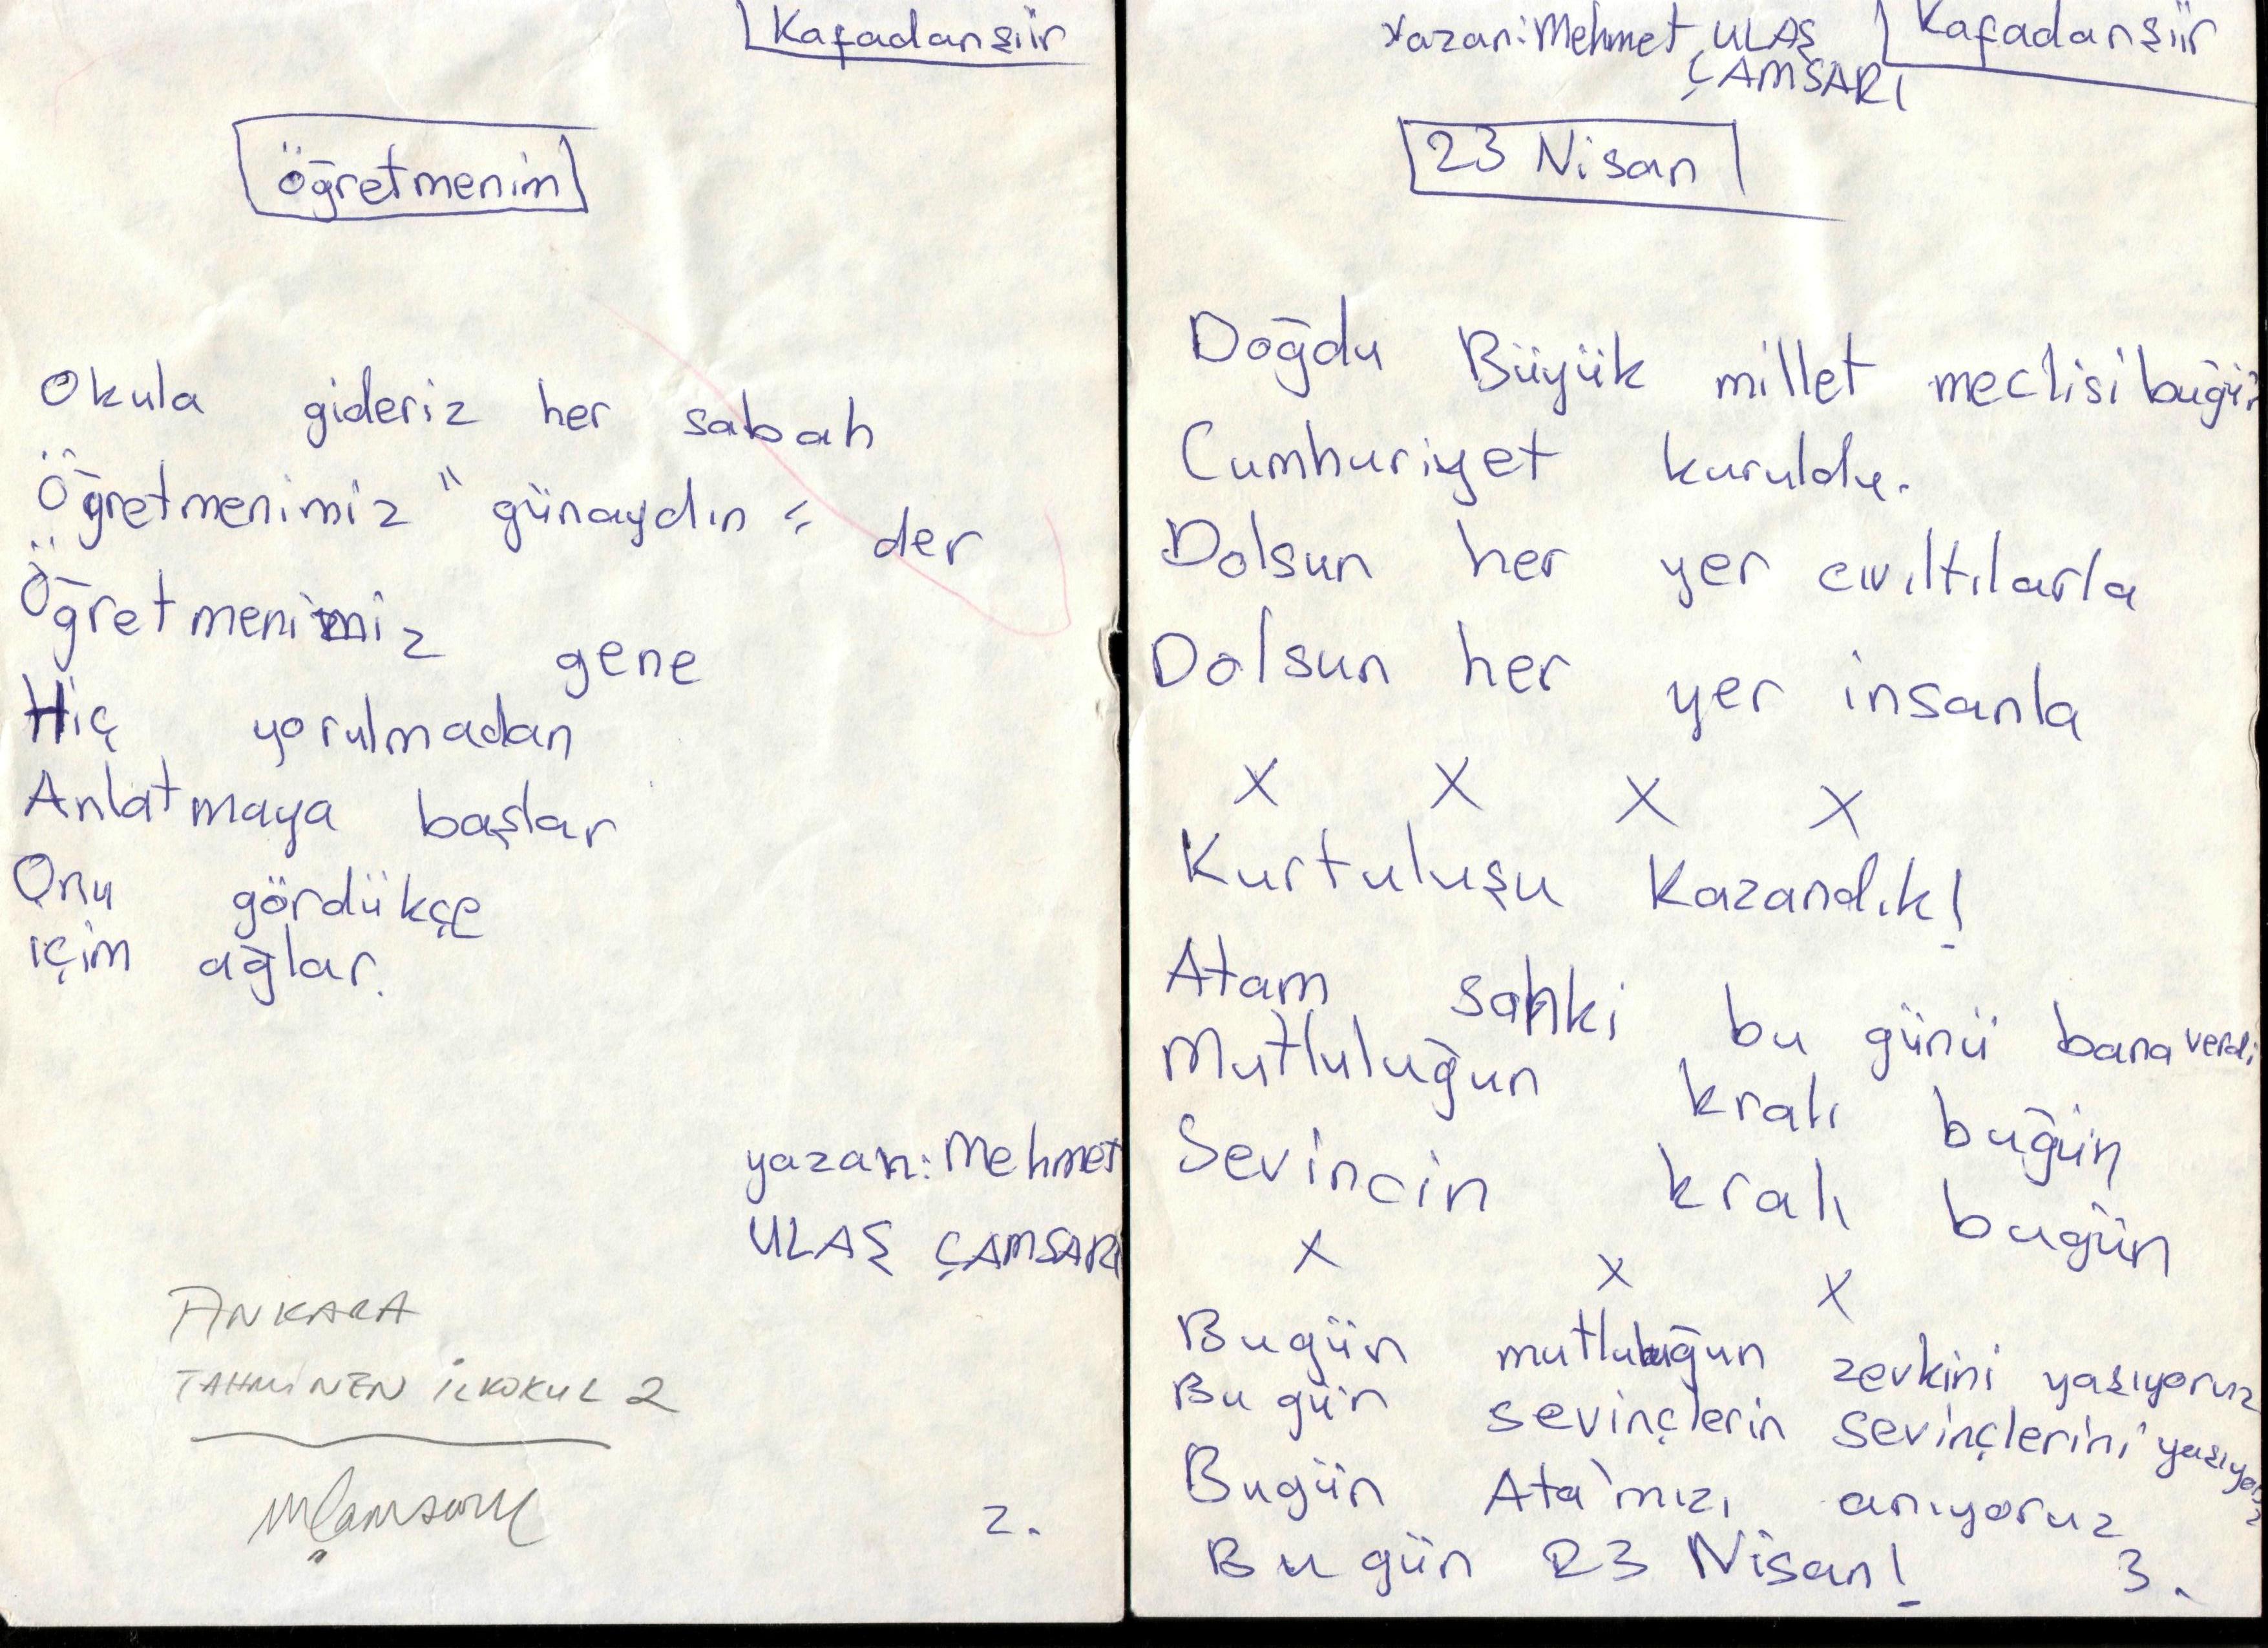 Kafadan şiir
öğretmenim
Okula gideriz her sabah
Öğretmenimiz "günaydın" der
Öğretmenimiz gene
Hiç yorulmadan
Anlatmaya başlar
Onu gördükçe
içim ağlar.
yazan: Mehmet
ULAŞ ÇAMSARI
ANKARA
TAHMİNEN İLKOKUL 2
MÇamsarı
2.
Yazan: Mehmet ULAŞ
ÇAMSARI
Kafadan şiir
23 Nisan
Doğdu Büyük millet meclisi buğün
Cumhuriyet kuruldu.
Dolsun her yer cıvıltılarla
Dolsun her yer insanla
X X X X
Kurtuluşu Kazandık!
Atam sanki bu günü bana verdi
Mutluluğun kralı buğün
Sevincin kralı bugün
X X X
Bugün mutluluğun zevkini yaşıyoruz
Bu gün sevinçlerin sevinçlerini yaşıyoruz
Bugün Ata'mızı anıyoruz
Bu gün 23 Nisan!
3.